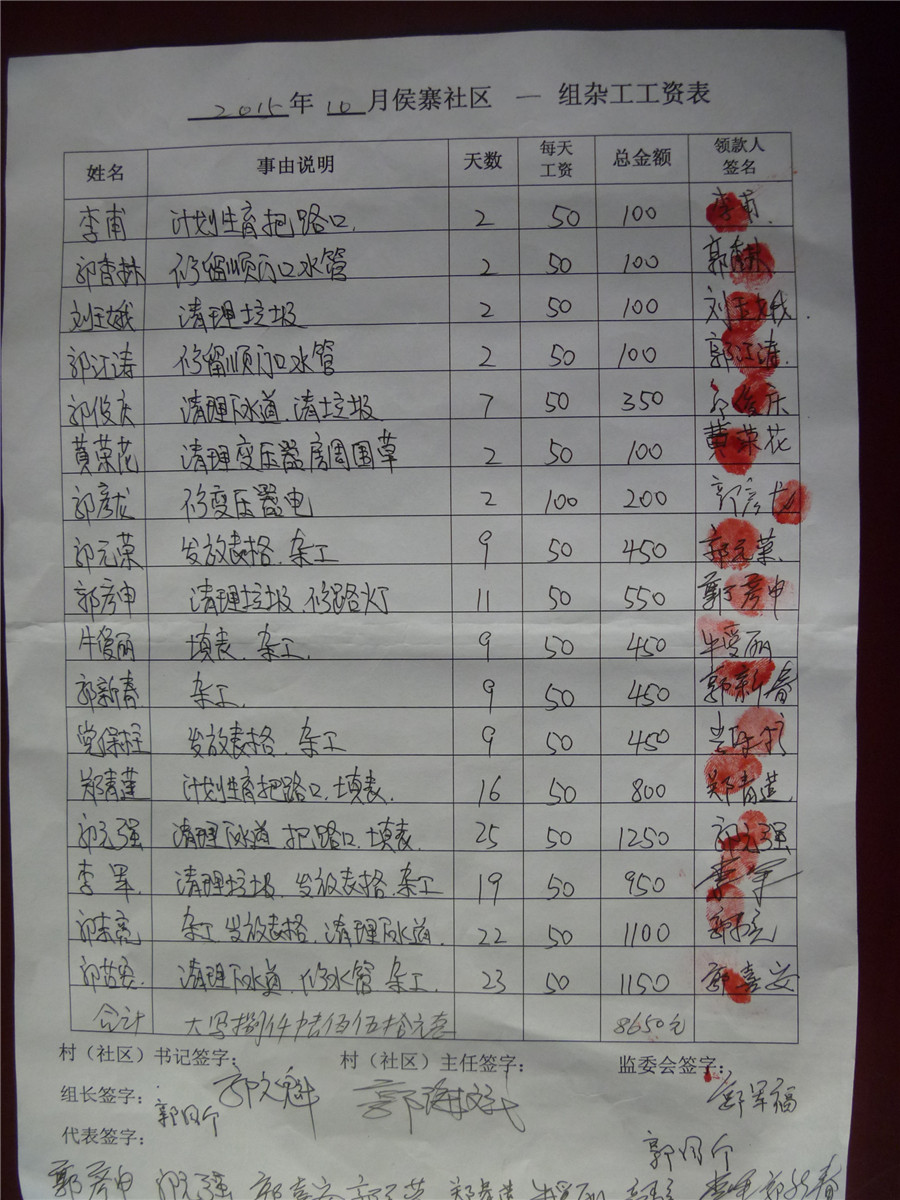 2015年10月侯寨社区 一 组杂工工资表
姓名 事由说明 天数 每天工资 总金额 领款人签名
李甫 计划生育把路口. 2 50 100 李甫.
郭青林 修留顺门口水管 2 50 100 郭青林
刘玉娥 清理垃圾 2 50 100 刘玉娥.
郭江涛 修留顺门口水管 2 50 100 郭江涛.
郭俊庆 清理下水道.清垃圾 7 50 350 郭俊庆
黄荣花 清理变压器房周围草 2 50 100 黄荣花
郭彦龙 修变压器电 2 100 200 郭彦龙
郭元荣 发放表格.杂工 9 50 450 郭元荣
郭彦申 清理垃圾.修路灯 11 50 550 郭彦申
牛爱丽 填表.杂工. 9 50 450 牛爱丽
郭新春 杂工. 9 50 450 郭新春
党保柱 发放表格.杂工 9 50 450 党保柱
郑青莲 计划生育把路口.填表. 16 50 800 郑青莲.
郭元强 清理下水道 把路口.填表. 25 50 1250 郭元强
李军. 清理垃圾.发放表格.杂工 19 50 950 李军
杂工 发放表格.清理下水道. 22 50 1100
清理下水道.修水管 杂工. 23 50 1150 郭喜安
合计 大写捌仟陆佰伍拾元整 8650元
村（社区）书记签字： 村（社区）主任签字： 监委会签字：
组长签字： 郭文魁
代表签字：
郭彦申 郭元强 郭喜安